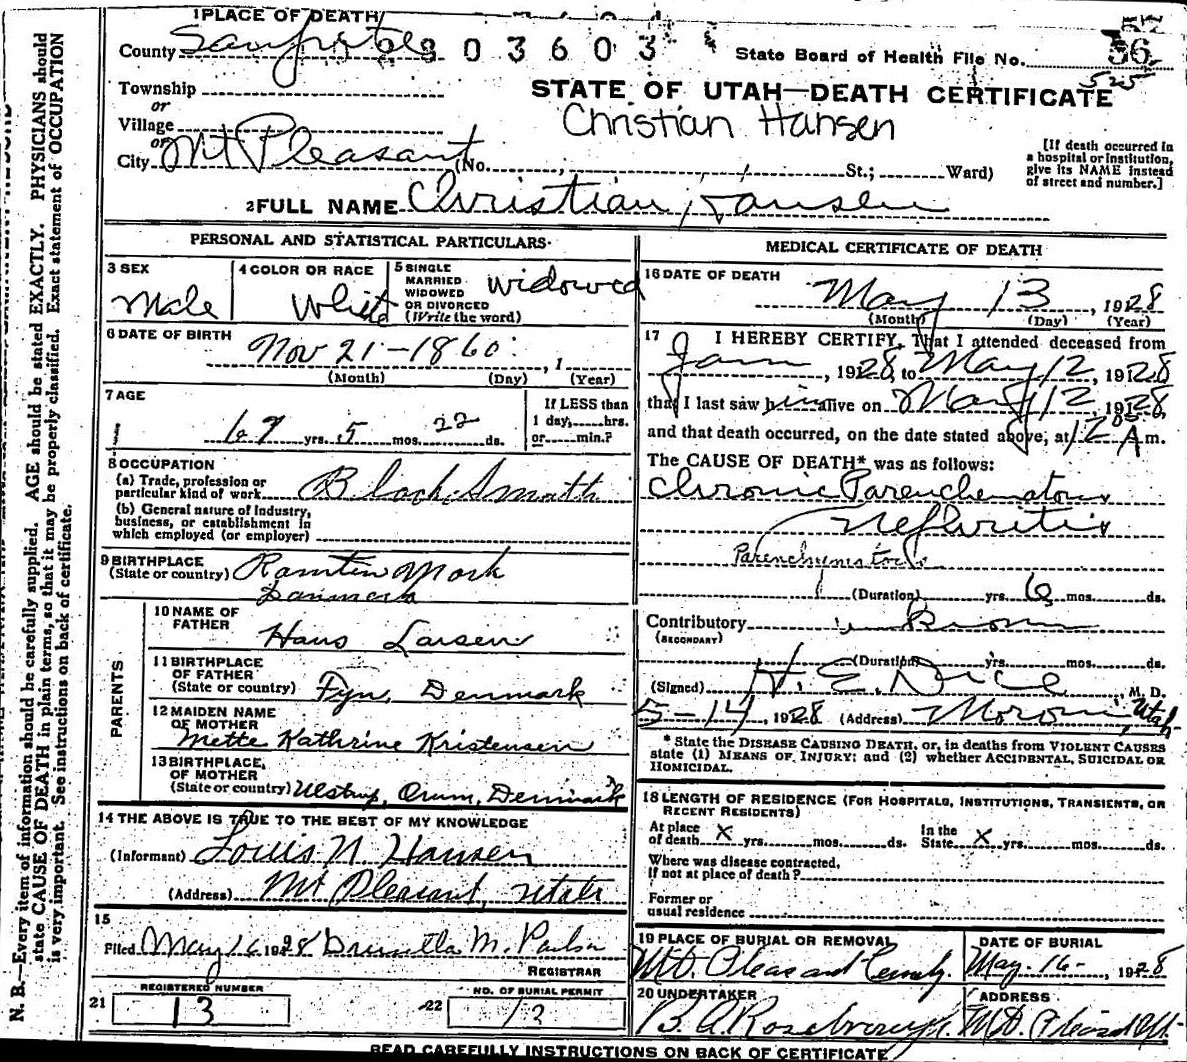 1 PLACE OF DEATH
County Sanpete 2803603 State Board of Health File No. 56
525
Township
or
Village
or
City Mt Pleasant (No. St.; Ward)
STATE OF UTAH—DEATH CERTIFICATE
Christian Hansen
[If death occurred in a hospital or institution, give its NAME instead of street and number.]
2 FULL NAME Christian Hansen
PERSONAL AND STATISTICAL PARTICULARS
3 SEX Male
4 COLOR OR RACE White
5 SINGLE MARRIED WIDOWED OR DIVORCED (Write the word) Widowed
6 DATE OF BIRTH Nov 21-1860, 1
(Month) (Day) (Year)
7 AGE 67 yrs. 5 mos. 22 ds.
If LESS than 1 day, hrs. or min.?
8 OCCUPATION
(a) Trade, profession or particular kind of work Black Smith
(b) General nature of Industry, business, or establishment in which employed (or employer)
9 BIRTHPLACE
(State or country) Mark
Danmark
PARENTS
10 NAME OF FATHER Hans Larsen
11 BIRTHPLACE OF FATHER
(State or country) Fyn, Denmark
12 MAIDEN NAME OF MOTHER
Mette Kathrine Kristensen
13 BIRTHPLACE OF MOTHER
(State or country) Ulstrup, Orum, Denmark
14 THE ABOVE IS TRUE TO THE BEST OF MY KNOWLEDGE
(Informant) Louis N Hansen
(Address) Mt Pleasant, Utah
15
Filed May 16 1928 Drusilla M.
REGISTRAR
21 REGISTERED NUMBER 13
22 NO. OF BURIAL PERMIT 13
MEDICAL CERTIFICATE OF DEATH
16 DATE OF DEATH
May 13, 1928
(Month) (Day) (Year)
17 I HEREBY CERTIFY, That I attended deceased from
Jan, 1928, to May 12, 1928
that I last saw him alive on May 12, 1928,
and that death occurred, on the date stated above, at 12 05 A m.
The CAUSE OF DEATH* was as follows:
Chronic Parenchematous
Nefhritis
(Duration) yrs. 6 mos. ds.
Contributory
(SECONDARY)
(Duration) yrs. mos. ds.
(Signed) H. E. Dice, M. D.
5-14, 1928 (Address) Moroni, Utah
* State the DISEASE CAUSING DEATH, or, in deaths from VIOLENT CAUSES
state (1) MEANS OF INJURY; and (2) whether ACCIDENTAL, SUICIDAL OR
HOMICIDAL.
18 LENGTH OF RESIDENCE (FOR HOSPITALS, INSTITUTIONS, TRANSIENTS, OR
RECENT RESIDENTS)
At place of death X yrs. mos. ds. In the State X yrs. mos. ds.
Where was disease contracted,
If not at place of death?
Former or
usual residence
19 PLACE OF BURIAL OR REMOVAL
DATE OF BURIAL May 16-, 1928
20 UNDERTAKER
ADDRESS
READ CAREFULLY INSTRUCTIONS ON BACK OF CERTIFICATE
N. B.—Every item of information should be carefully supplied. AGE should be stated EXACTLY. PHYSICIANS should
state CAUSE OF DEATH in plain terms, so that it may be properly classified. Exact statement of OCCUPATION
is very important. See instructions on back of certificate.